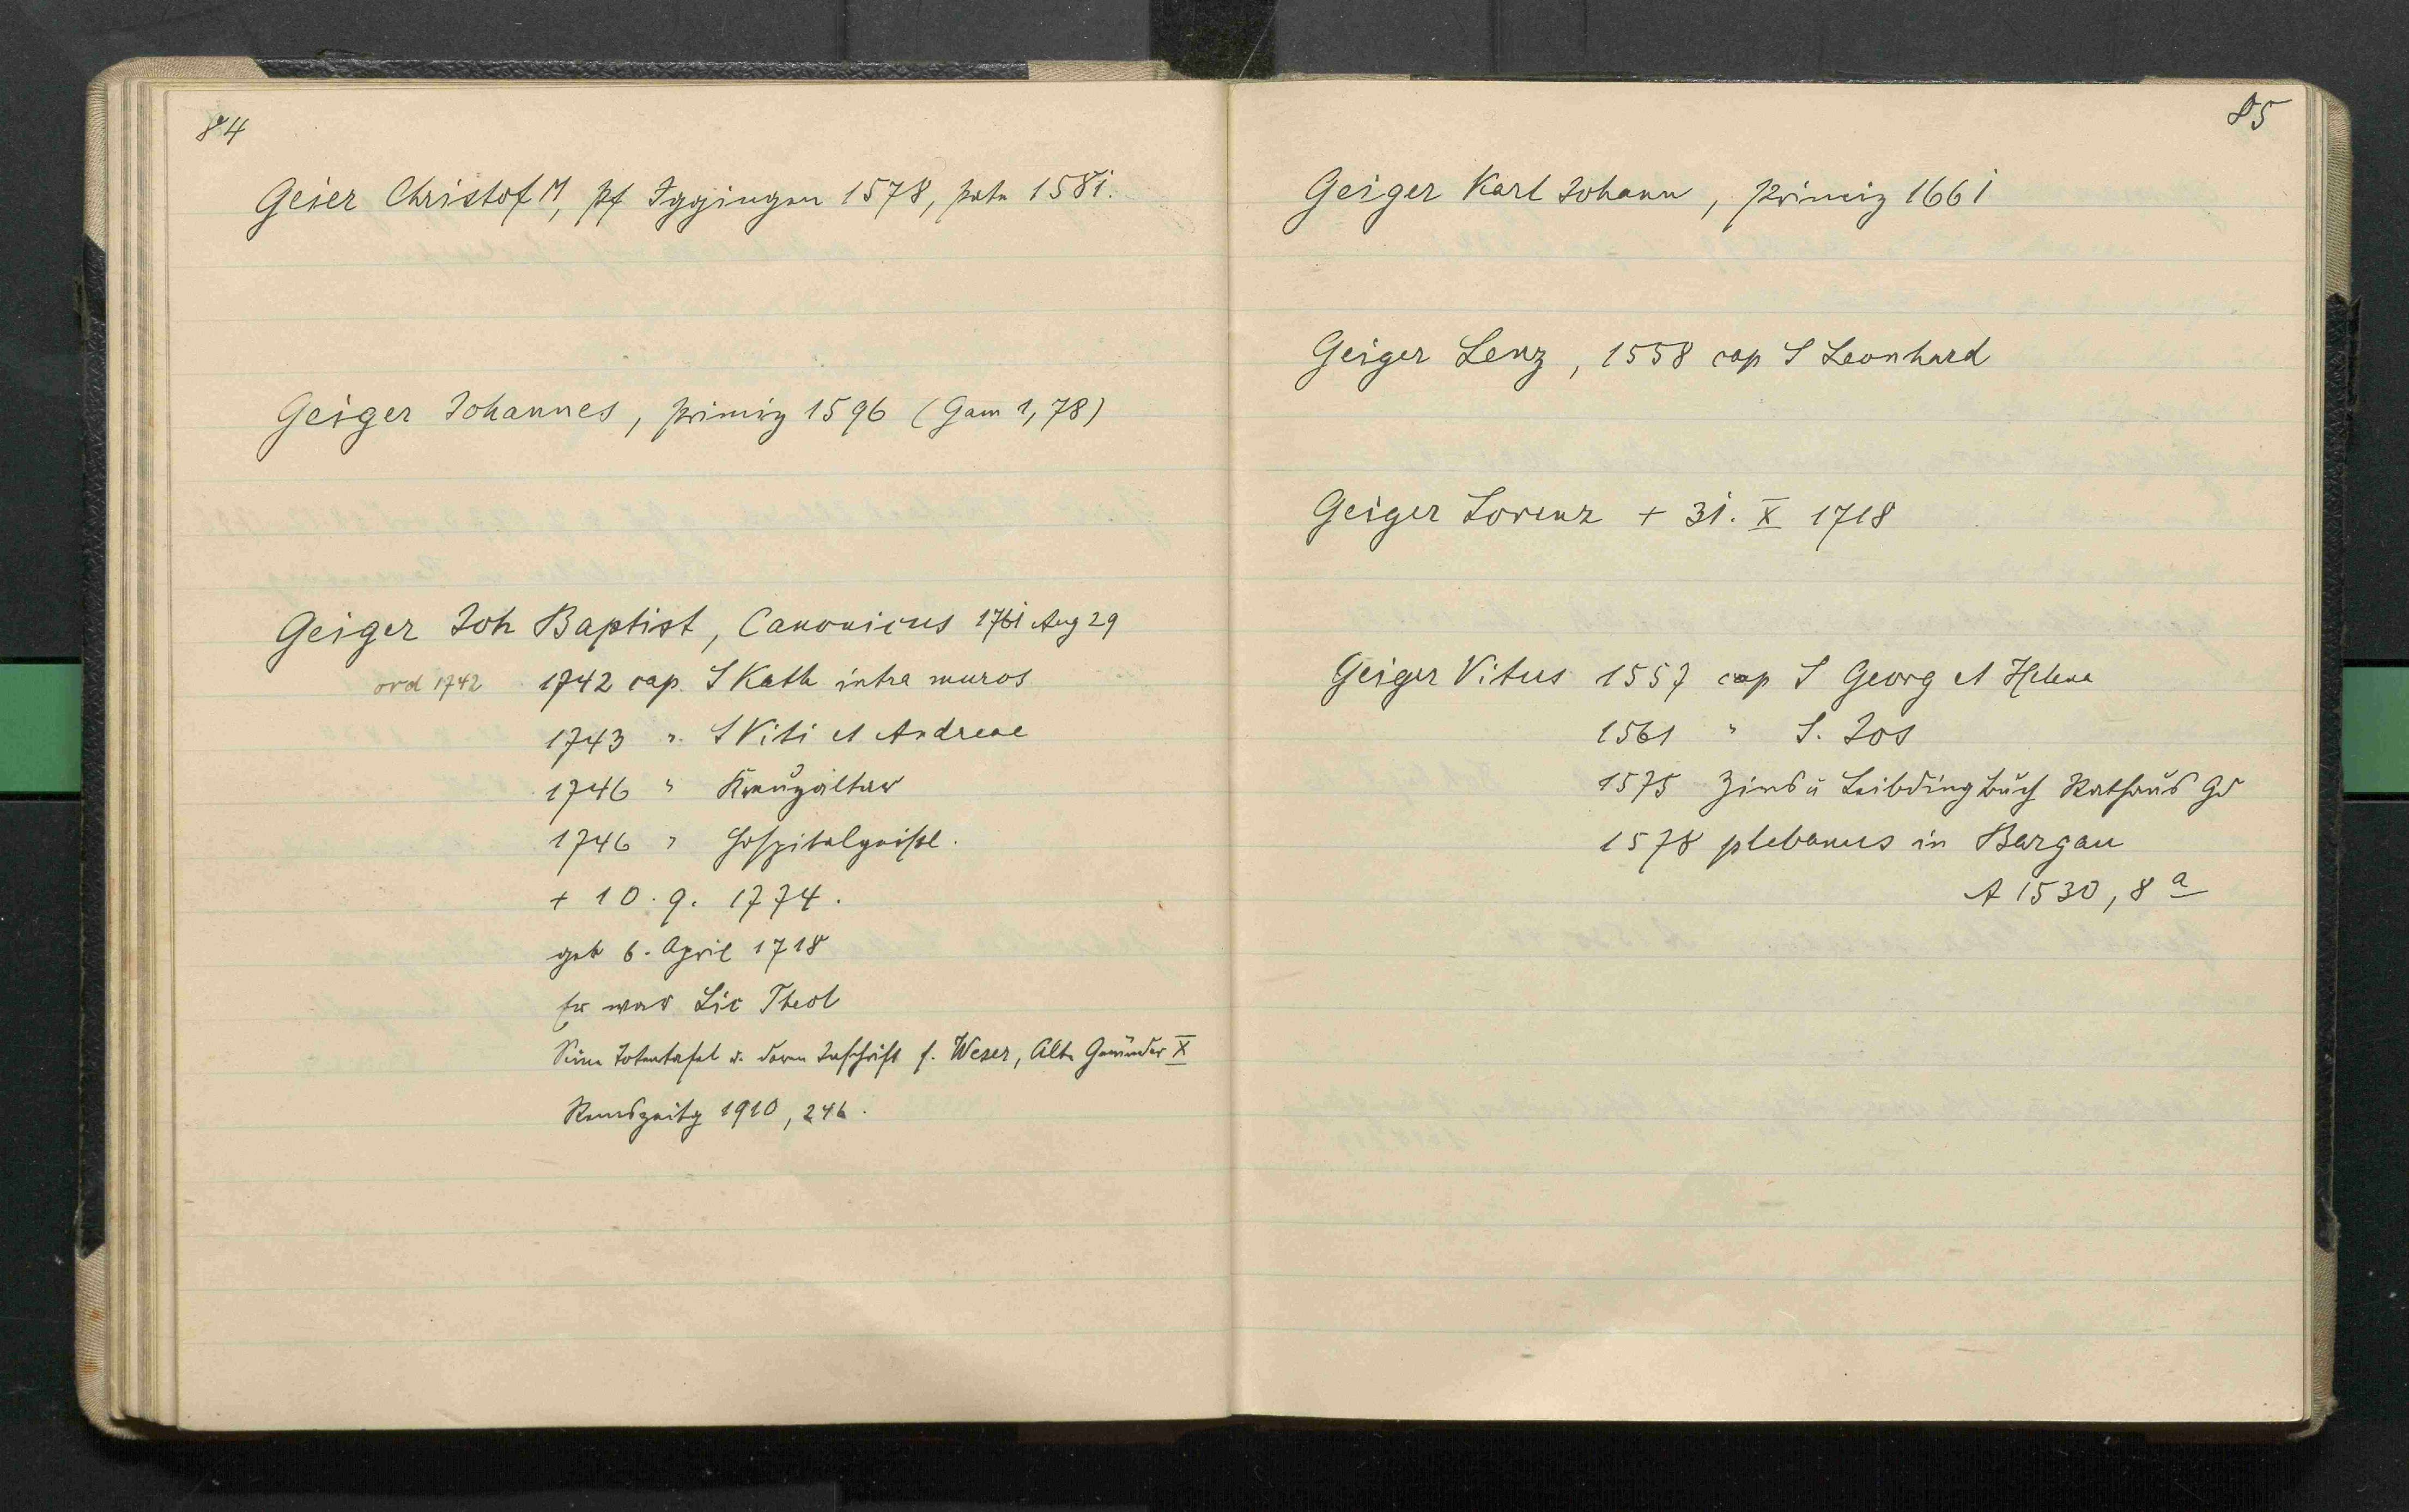 84
Geier Christof M, pf Iggingen 1578, 1581.
Geiger Johannes, primiz 1596 (Gam 1,78)
Geiger Joh Baptist, Canonicus 1761 Aug 29
ord 1742 1742 cap. S Kath intra muros
1743 " S Viti et Andreae
1746 " Kreuzaltar
1746 " Hospitalgeistl.
+ 10. 9. 1774.
geb 6. April 1718
Er war Lic Theol
Seine Totentafel u. deren Inschrift s. Weser, Alte Gmünder X
Remszeitg 1910, 246.
85
Geiger Karl Johann, Primiz 1661
Geiger Lenz, 1558 cap S Leonhard
Geiger Lorenz + 31. X 1718
Geiger Vitus 1557 cap S Georg et Helena
1561 " S. Jos
1575 Zins u Leibdingbuch Rathaus Gd
1578 plebanus in Bargau
A 1530, 8a